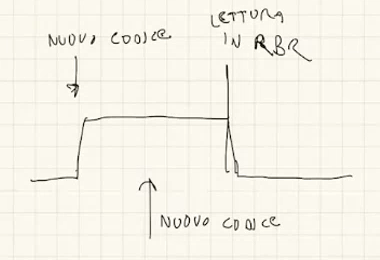 NUOVO CODICE
LETTURA
IN RBR
NUOVO CODICE